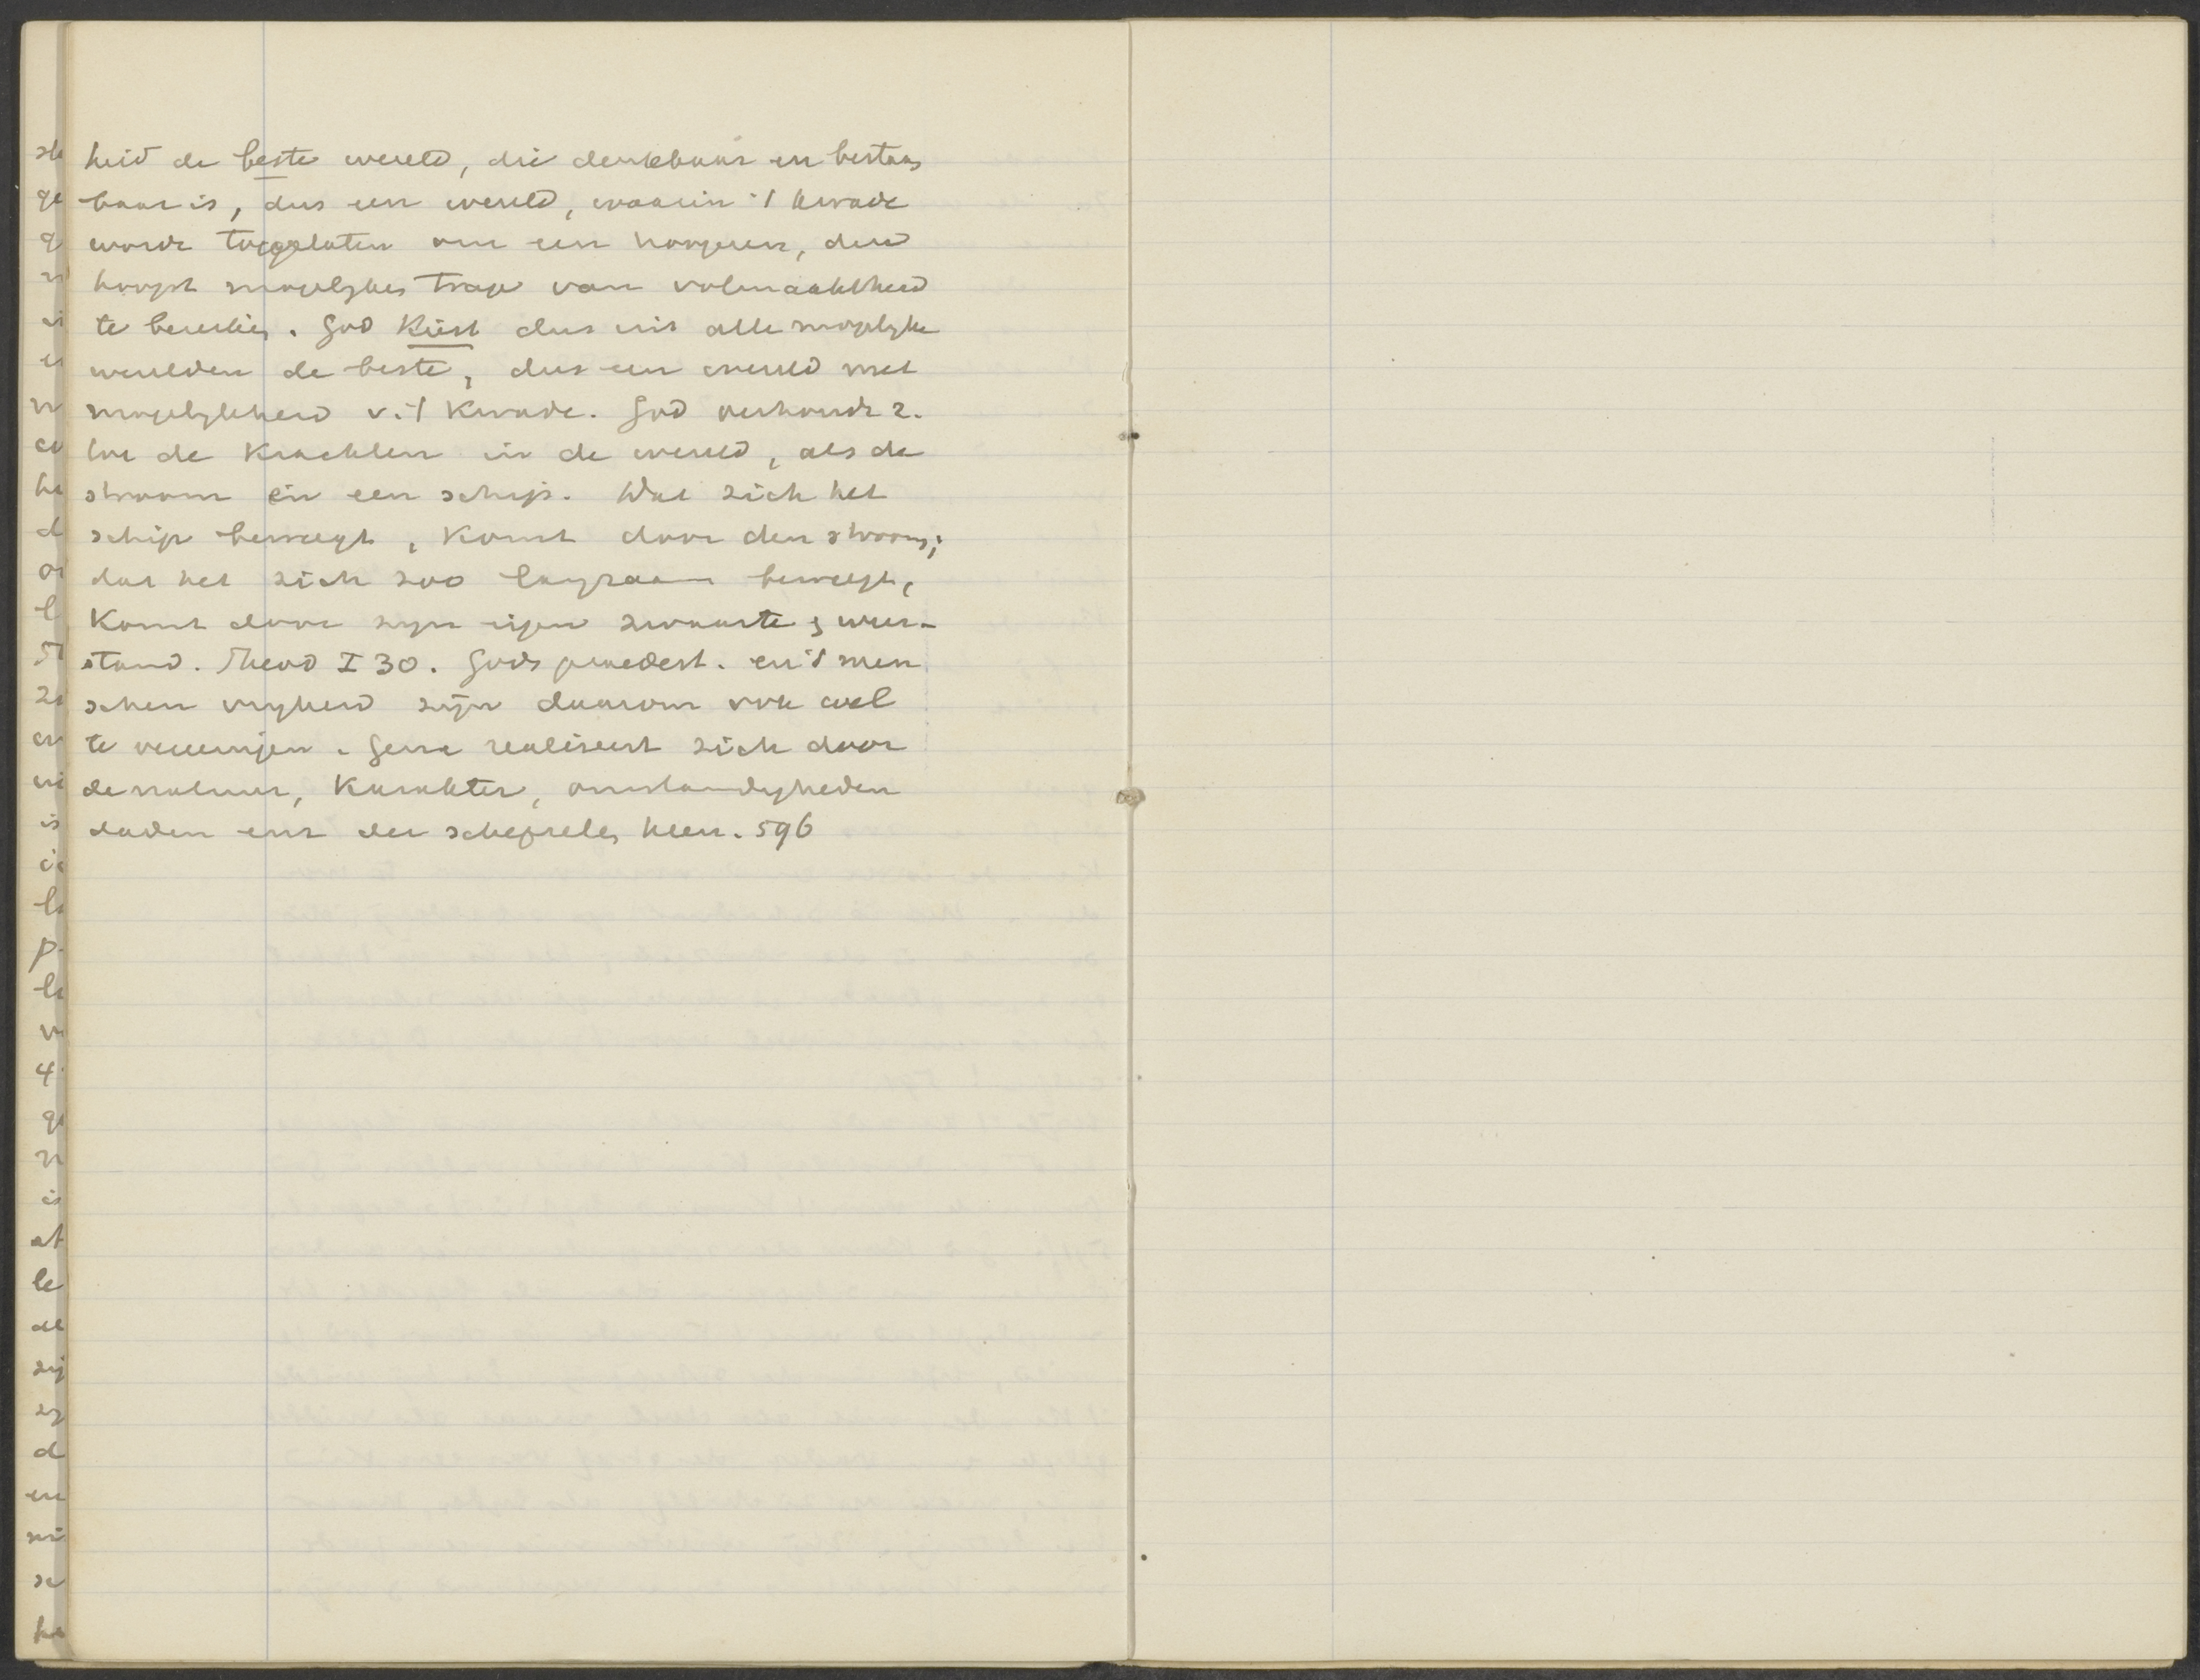 heid de beste wereld, die denkbaar en bestaan
baar is, dus een wereld, waarin 't kwade
worde toegelaten om een hoogeren, den
hoogst mogelyken trap van volmaaktheid
te bereiken. God Kiest dus uit alle mogelyke
werelden de beste, dus een wereld met
mogelykheid v. 't Kwade. God verhoudt z.
tot de Krachten in de wereld, als de
stroom en een schip. Dat zich het
schip beweegt, Komt door den stroom;
dat het zich zoo langzaam beweegt,
Komt door zyn eigen zwaarte & weer-
stand. Theod I 30. Gods praedest. en 's men
schen vryheid zyn daarom ook wel
te vereenigen. Gene realiseert zich door
de natuur, Karakter, omstandigheden
daden enz der schepselen heen. 596